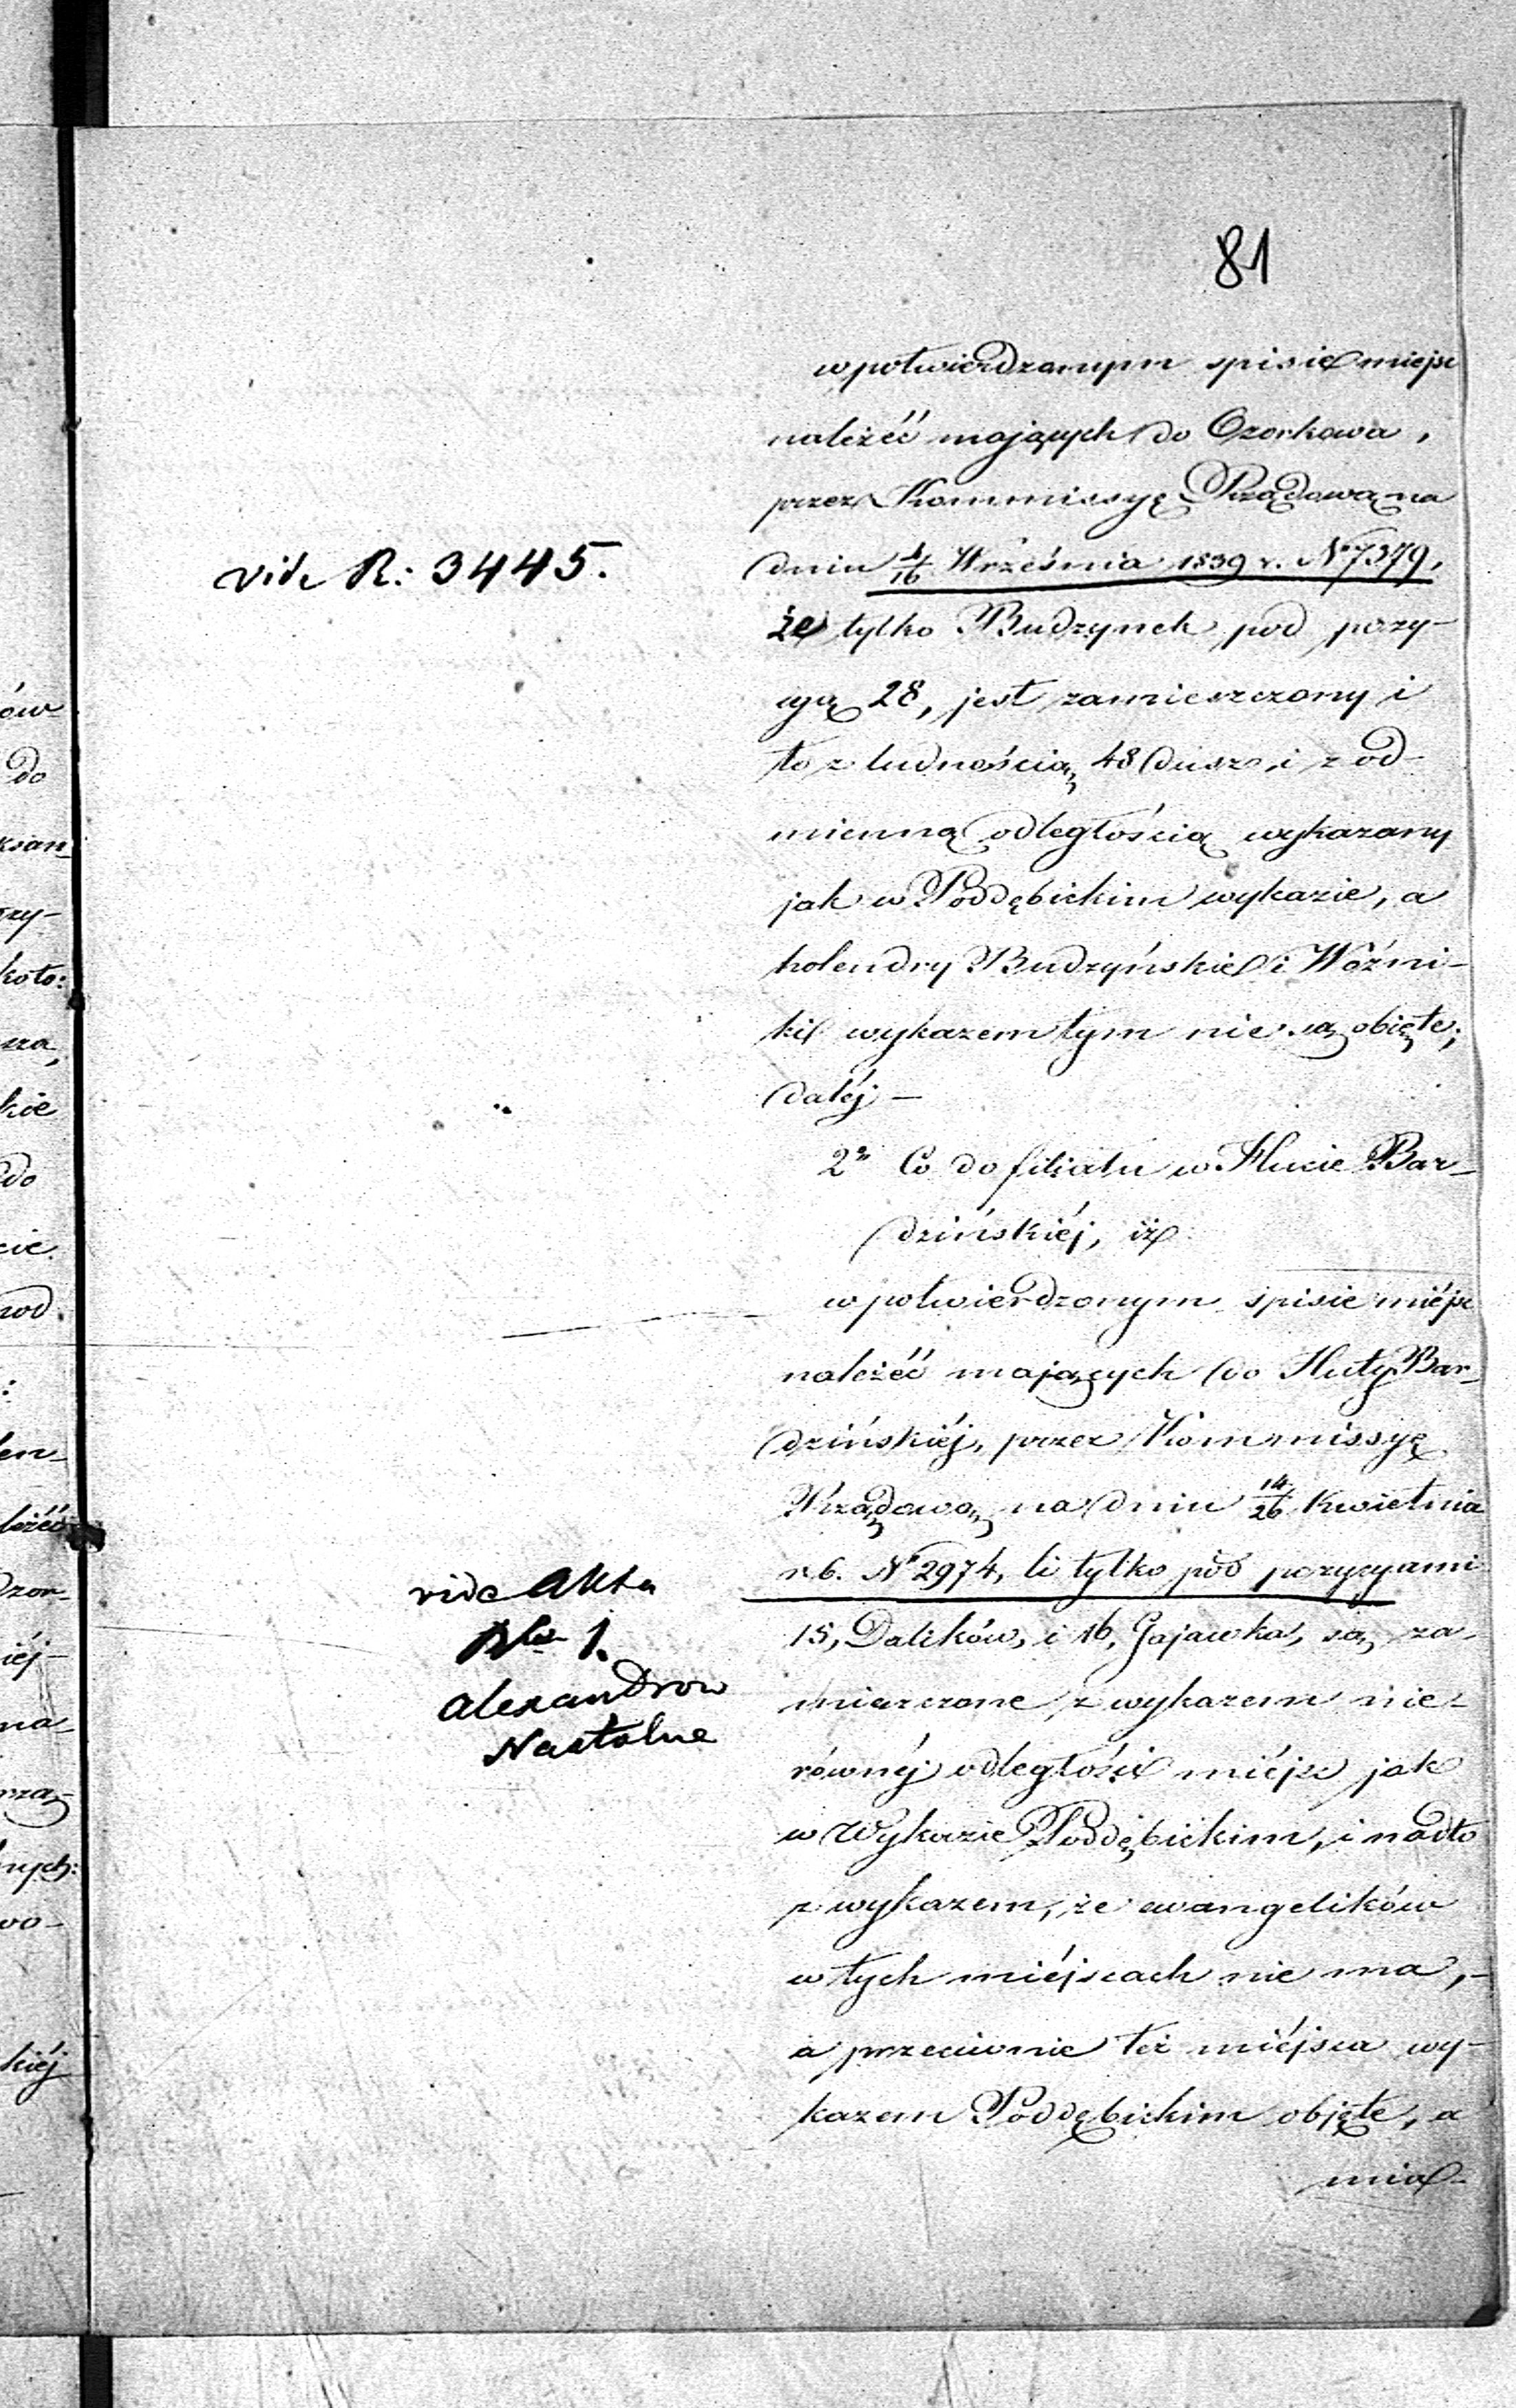 81
w potwierdzonym spisie miejsc
należéć mających do Ozorkowa,
przez Kommissyę Rządową na
dniu 4/16 Września 1839 r. Nº 7379,
vide R: 3445.
że tylko Budzynek pod pozy-
cyą 28, jest zamieszczony i
to z ludnością 48 dusz, i z od-
mienną odległością wykazany
jak w Poddębickim wykazie, a
holendry Budzyńskie i Woźni-
ki wykazem tym nie są obięte;
daléj —
2º Co do filiału w Hucie Bar-
dzińskiéj, iż
w potwierdzonym spisie miéjsc
należéć mających do Huty Bar-
dzińskiéj, przez Kommissyę
Rządową na dniu 14/26 Kwietnia
r. b. Nº 2974, li tylko pod pozycyami
vide Akta
1.
Alexandrow
15, Dalików, i 16, Gajawka, są za-
mieszczone z wykazem nie-
równéj odległości miéjsc jak
w Wykazie Poddębickim, i nadto
z wykazem, że ewangelików
w tych miéjscach nie ma, -
a przeciwnie też miéjsca wy-
kazem Poddębickim objęte, a
mia-
ów
do
ksan-
rzy-
koło:
sza,
kie
do
cie
pod.
:
len-
leżéć
dzon-
iéj-
na-
rzą-
nych:
wo-
kiéj